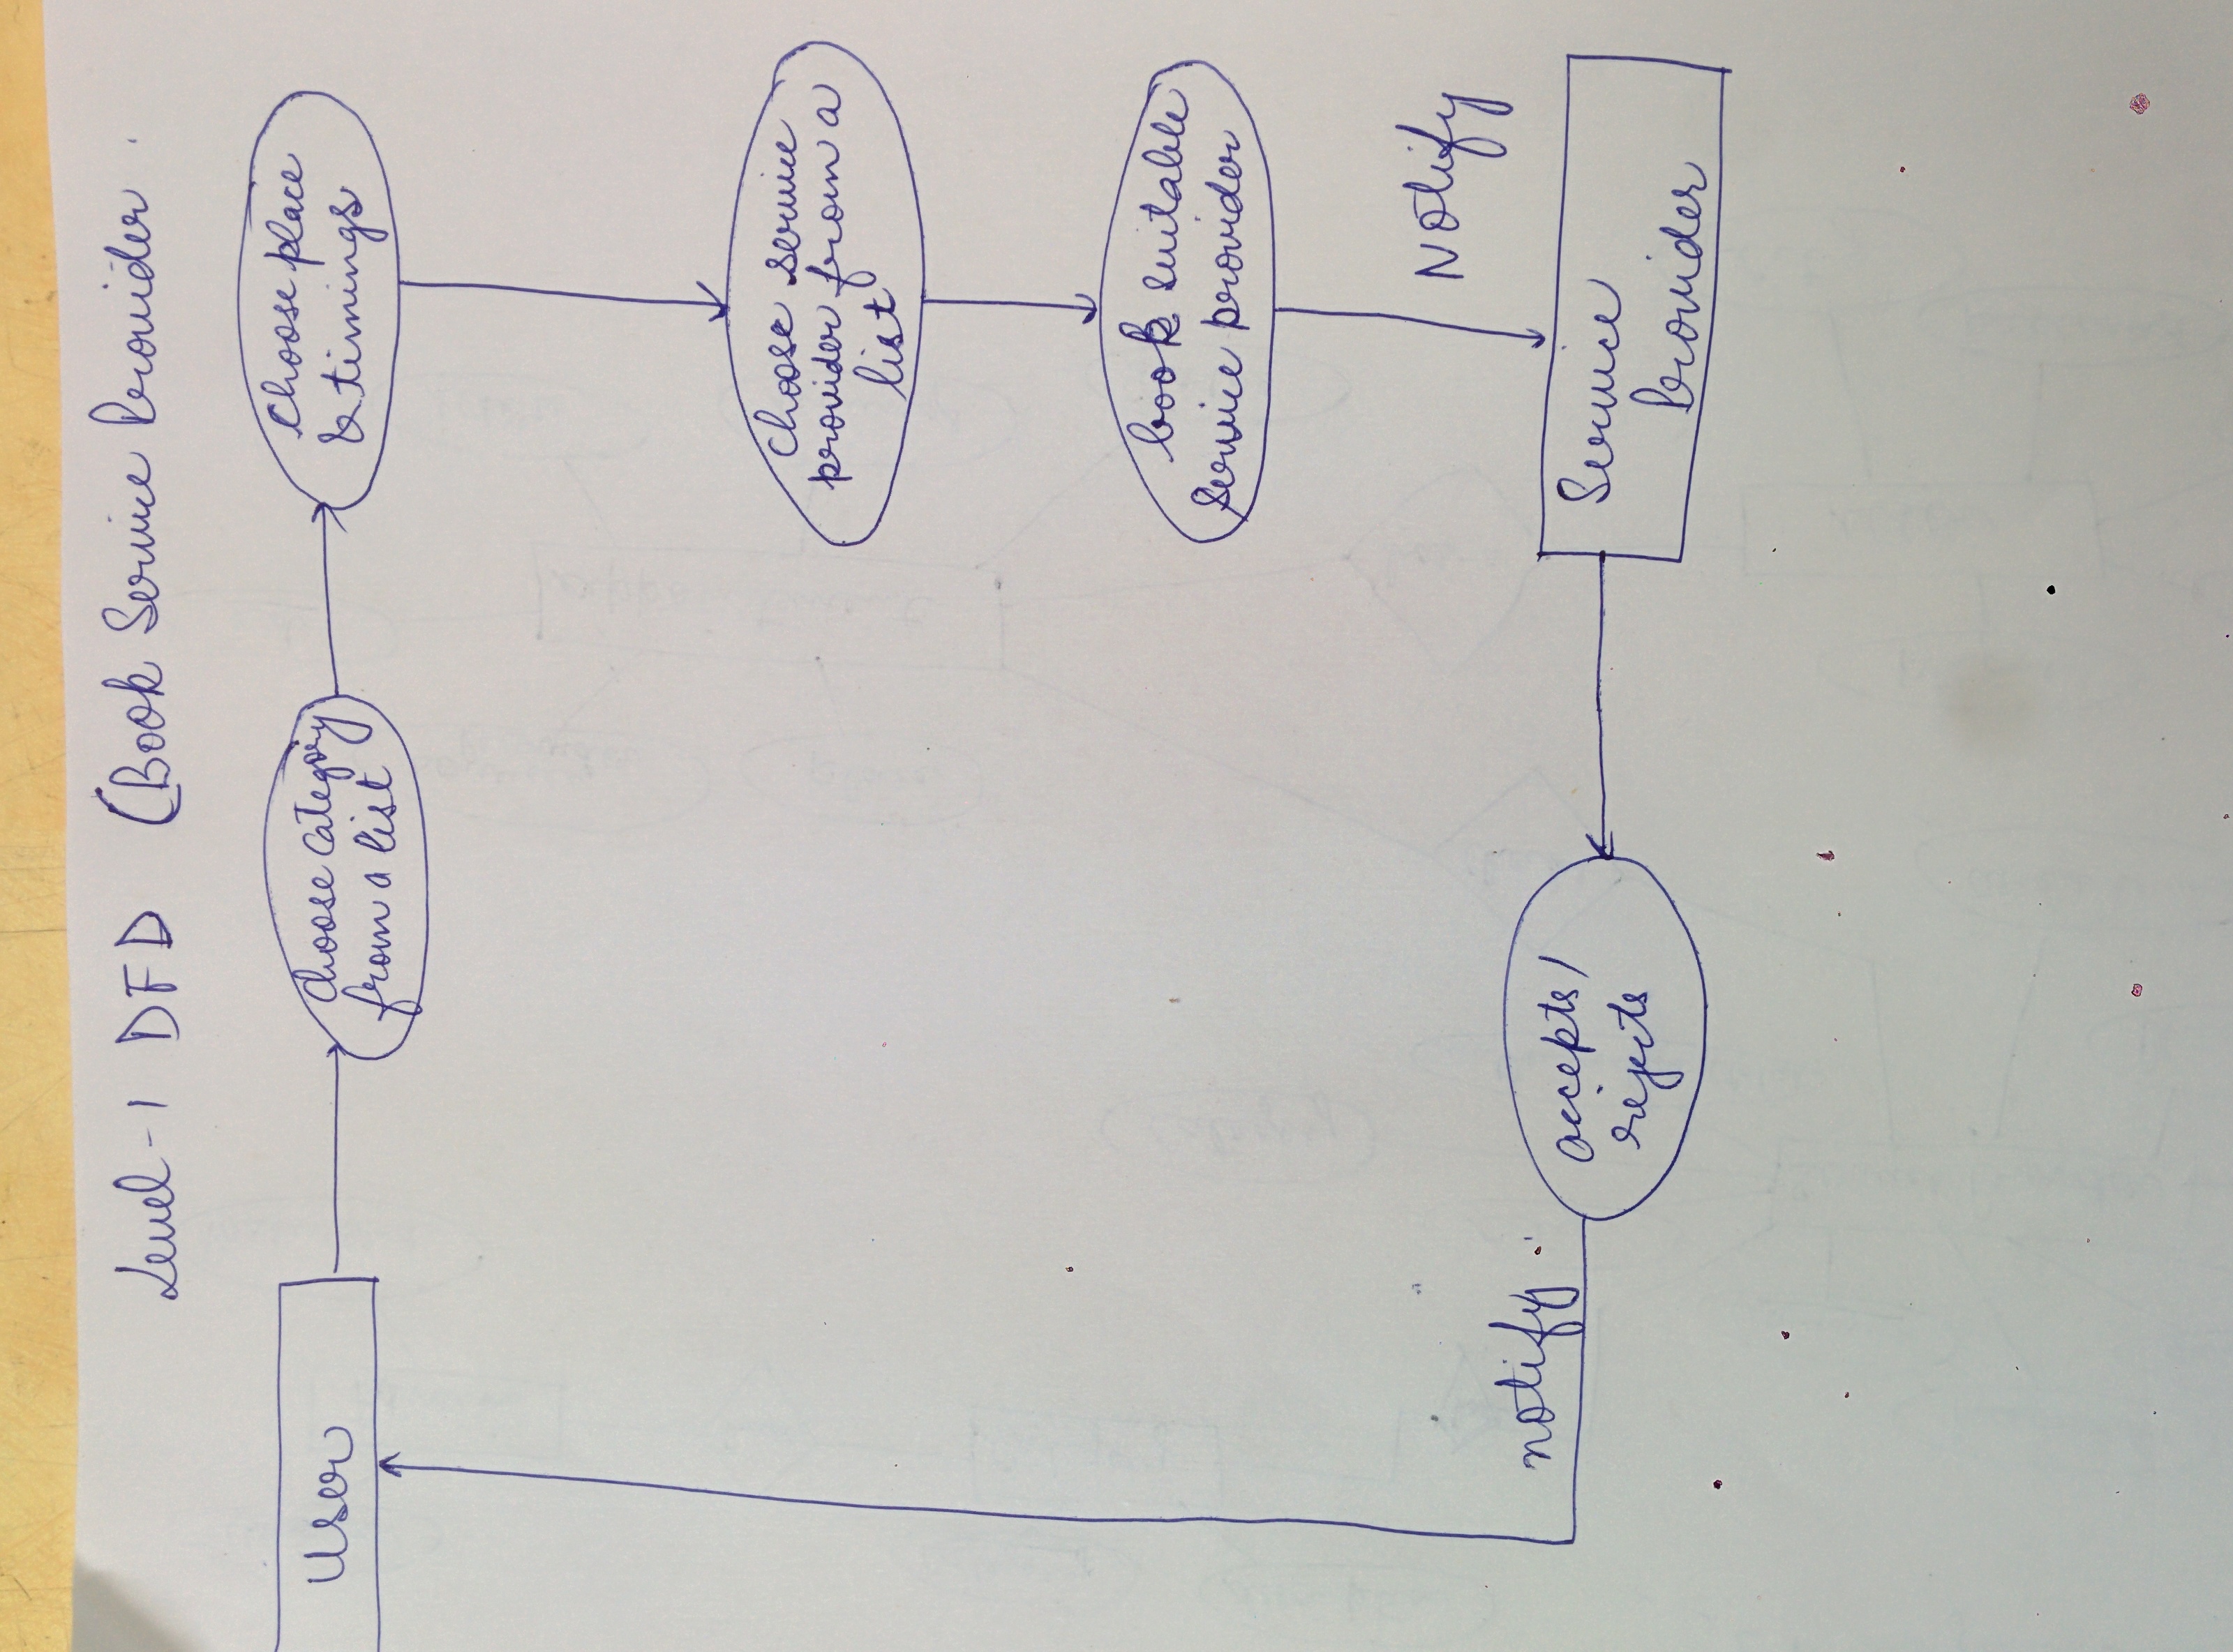 Level-1 DFD (Book Service Provider
User
choose category
from a list
choose place
& timings
choose service
provider from a
list
book suitable
service provider
Notify
Service
Provider
accepts/
rejects
notify